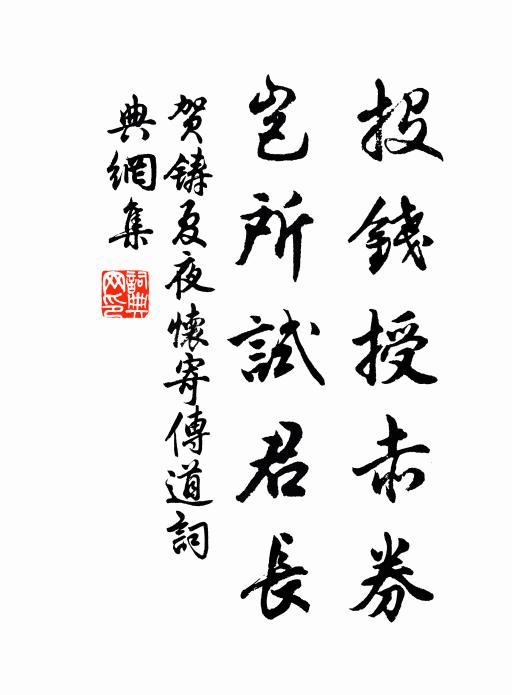 投錢授赤券
豈所試君長
賀鑄夏夜懷寄傳道詞
典網集
詞典
网印